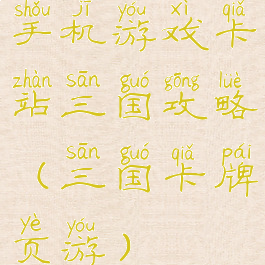 shǒu jī yóu xì qiǎ
手机游戏卡
zhàn sān guó gōng lüè
站三国攻略
sān guó qiǎ pái
（三国卡牌
yè yóu
页游）